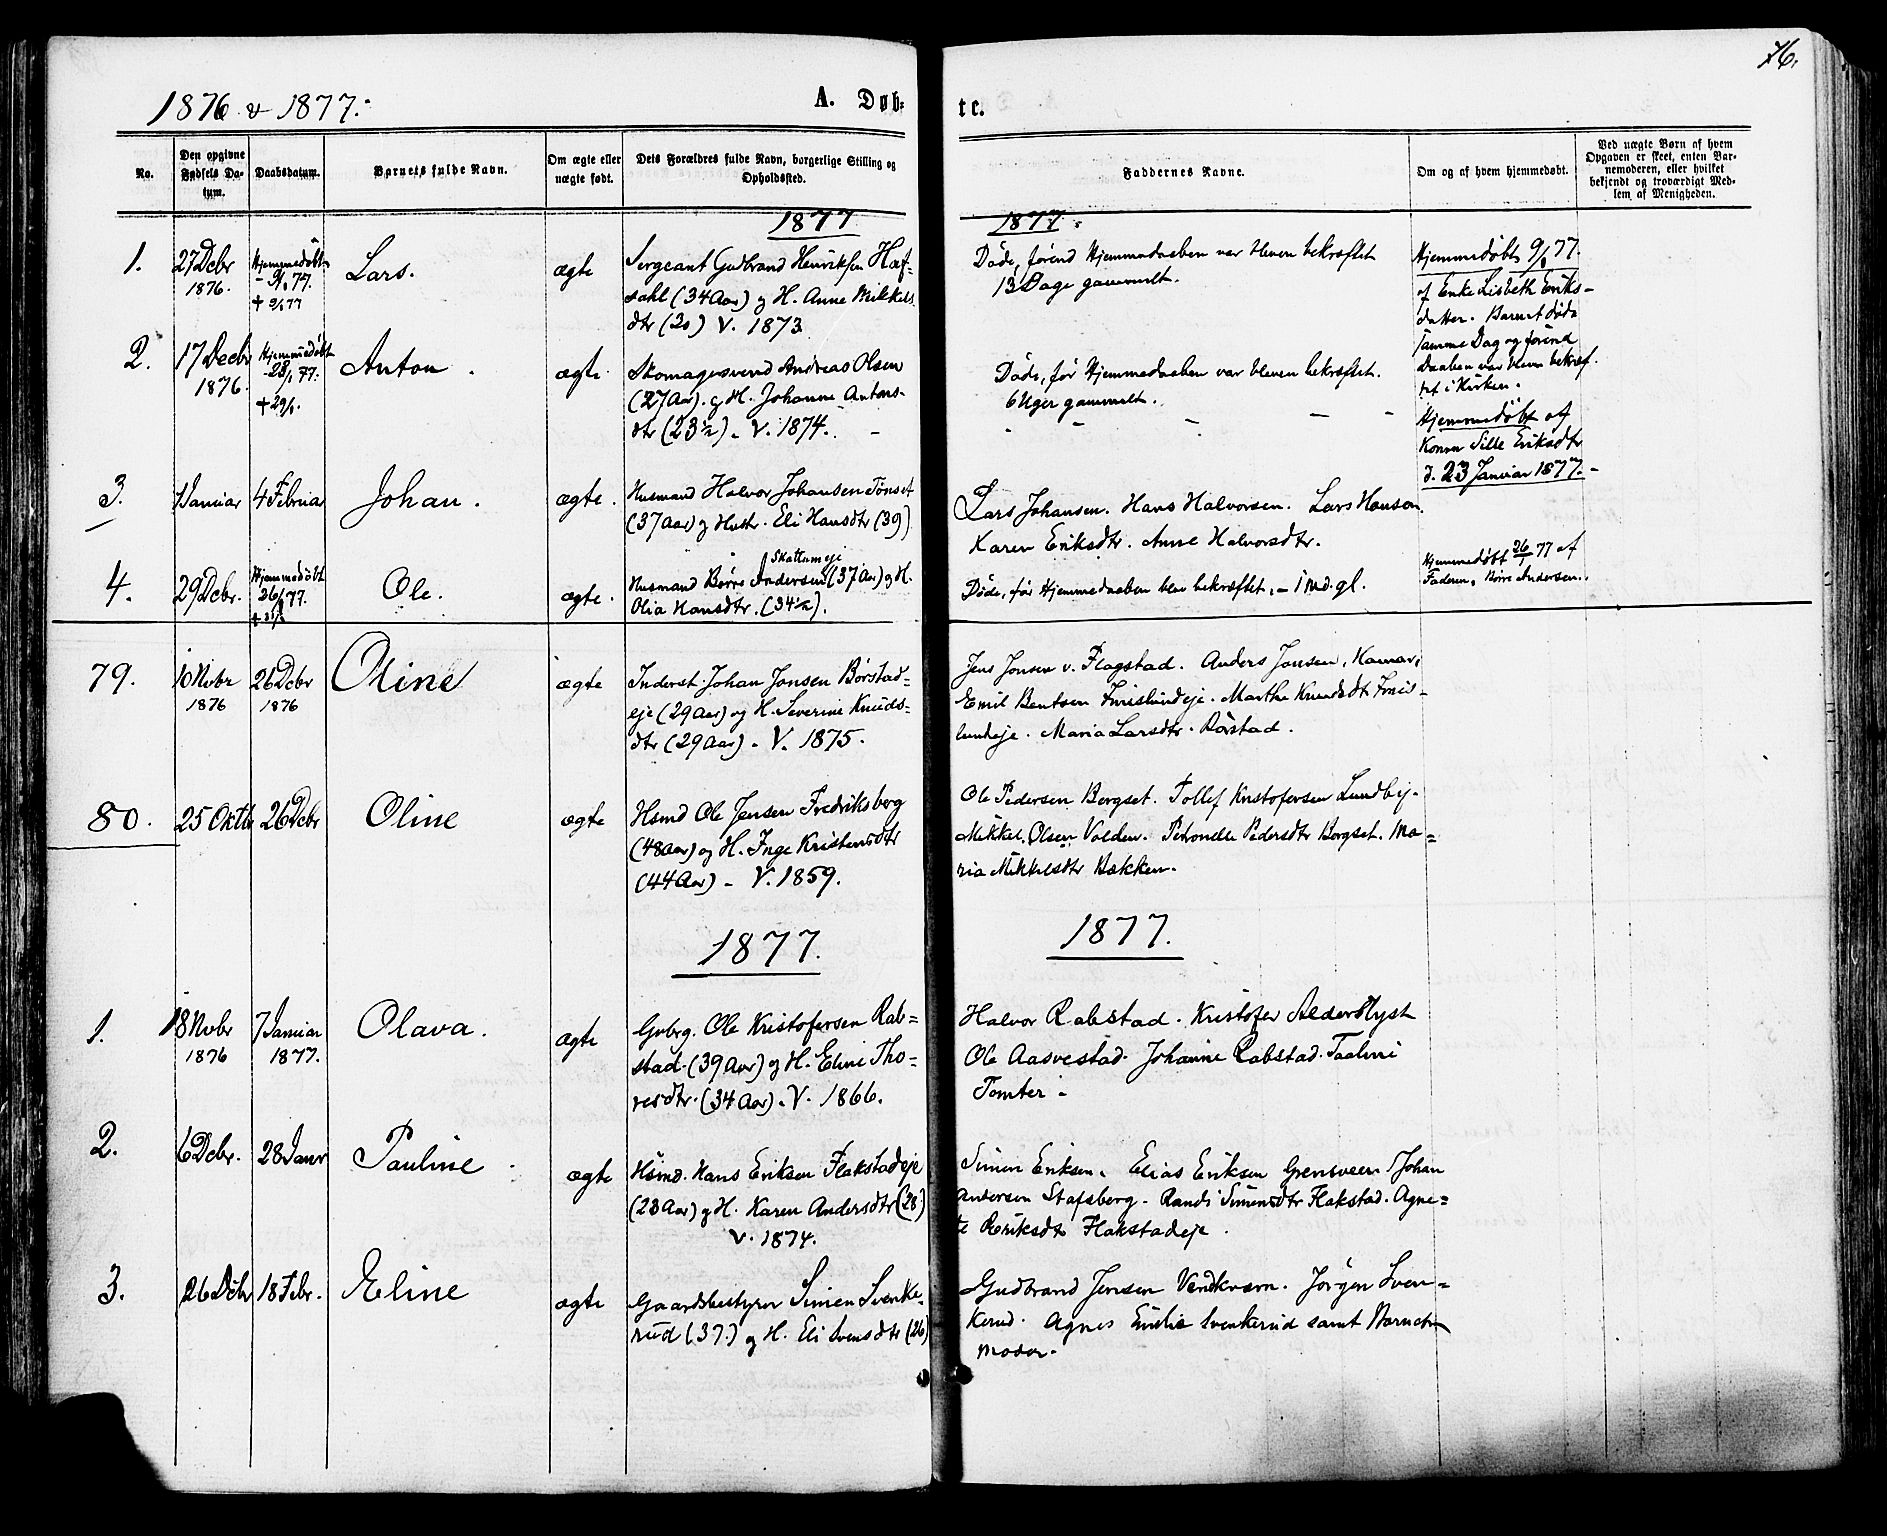 76.
1876 & 1877.
A. Døb-
te.
No.
Den opgivne Fødsels Da-tum.
Daabsdatum.
Barnets fulde Navn.
Om ægte eller nægte født.
Dets Forældres fulde Navn, borgerlige Stilling og Opholdssted.
Faddernes Navne.
Om og af hvem hjemmedøbt.
Ved uægte Børn af hvem Opgaven er skeet, enten Bar-nemoderen, eller hvilket bekjendt og troværdigt Med-lem af Menigheden.
1877
1877.
1.
27 Debr
1876.
Hjemmedøbt
- 9/1 77.
+ 9/1 77
Lars.
ægte
Sergeant Gudbrand Henriksen Haf-
sahl (34 Aar) og H. Anne Mikkels
dtr (30) V. 1873
Døde, førend Hjemmedaaben var bleven bekræftet
13 Dage gammelt.
Hjemmedøbt 9/1 77.
af Enke Lisbeth Eriks-
datter. Barnet døde
samme Dag og førend
Daaben var bleven bekræf-
tet i Kirken.
2.
17 Decbr
1876.
Hjemmedøbt
- 23/1 77.
+ 29/1.
Anton.
ægte
Skomagersvend Andreas Olsen
(27 Aar). og H. Johanne Antons-
dtr (23 1/2) - V. 1874. -
Døde, før Hjemmedaaben var bleven bekræftet.
6 Uger gammelt.
Hjemmedøbt af
Konen Sille Eriksdtr
d. 23 Januar 1877. -
3.
1 Januar
4 Februar
Johan.
ægte.
Husmand Halvor Johansen Tønset
(37 Aar) og Hustr. Eli Hansdtr (39)
Lars Johansen. Hans Halvorsen. Lars Hansen.
Karen Eriksdtr. Anne Halvorsdtr.
4.
29 Debr.
Hjemmedøbt
26/1 77.
+ 31/1
Ole.
ægte.
Skattumeje
Husmand Børre Andersen (37 Aar) og H.
Olia Hansdtr. (34 1/2).
Døde, før Hjemmedaaben blev bekræftet. - 1 Md. gl.
Hjemmedøbt 26/1 77 af
Faderen, Børre Andersen.
79.
10 Nvbr
1876
26 Debr
1876
Oline
ægte
Inderst. Johan Jonsen Børstad-
eje (29 Aar) og H. Severine Knuds-
dtr (29 Aar) - V. 1875.
Jens Jonsen v. Flagstad. Anders Jonsen, Hamar,
Emil Bentsen Furuslundeje. Marthe Knudsdtr Furus-
lundeje. Maria Larsdtr. Børstad.
80.
25 Oktbr
26 Debr
Oline
ægte
Hsmd Ole Jensen Fredriksberg
(48 Aar) og H. Inge Kristensdtr
(44 Aar) - V. 1859.
Ole Pedersen Bergset. Tollef Kristofersen Lundbyj.
Mikkel Olsen Volden. Petronelle Pedersdtr Bergset. Ma-
ria Mikkelsdtr Bækken.
1877.
1877.
1.
18 Nvbr
1876
7 Januar
1877.
Olava.
ægte
Gvbrg. Ole Kristofersen Rab-
stad. (39 Aar) og H. Eline Tho-
resdtr. (34 Aar). V. 1866.
Halvor Rabstad. Kristofer Alderslyst
Ole Aasvestad. Johanne Rabstad.
Tomter.
2.
6 Debr.
28 Janr
Pauline
ægte
Hsmd. Hans Eriksen Flakstadeje
(23 Aar) og H. Karen Andersdtr (28)
V. 1874.
Simen Eriksen. Elias Eriksen Grensveen. Johan
Andersen Stafsberg. Randi Simensdtr Flakstad. Agne-
te Eriksdtr Flakstadeje.
3.
26 Debr
18 Febr.
Eline
ægte
Gaardsbestyrer Simen Svenke-
rud (37.) og H. Eli Svensdtr (26)
Gudbrand Jensen Vendkværn. Jørgen Sven-
kerud. Agnes Emilie Svenkerud samt Barnets
Moder.